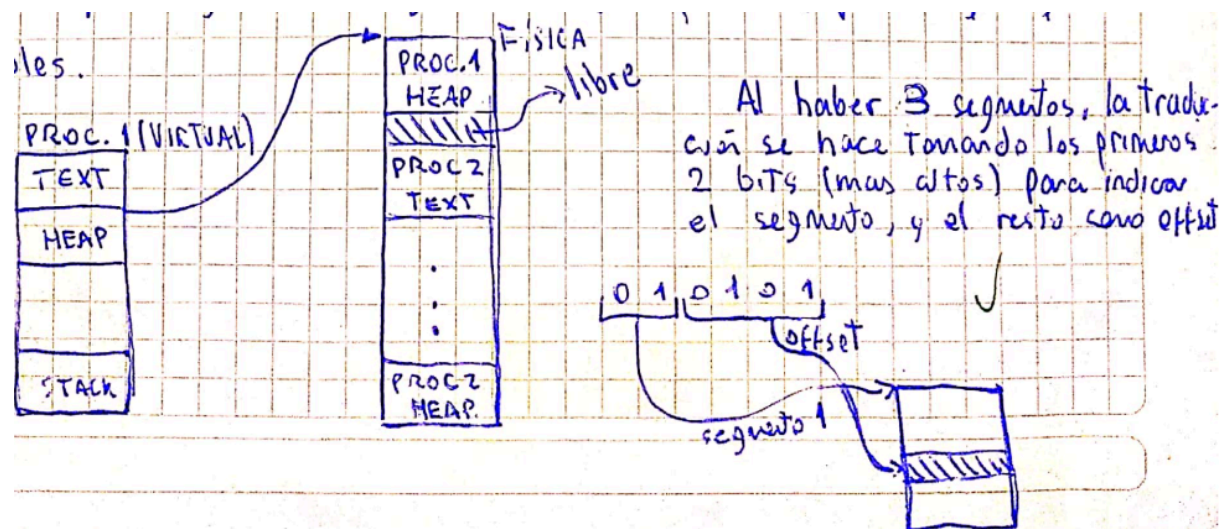 les.
PROC. 1 (VIRTUAL)
TEXT
HEAP
STACK
FíSICA
PROC.1
HEAP
libre
PROC2
TEXT
PROC2
HEAP.
Al haber 3 segmentos, la traduc-
ción se hace Tomando los primeros
2 biTs (mas altos) para indicar
el segmento, y el resto como offset
0 1 0 1 0 1
offset
segmento 1